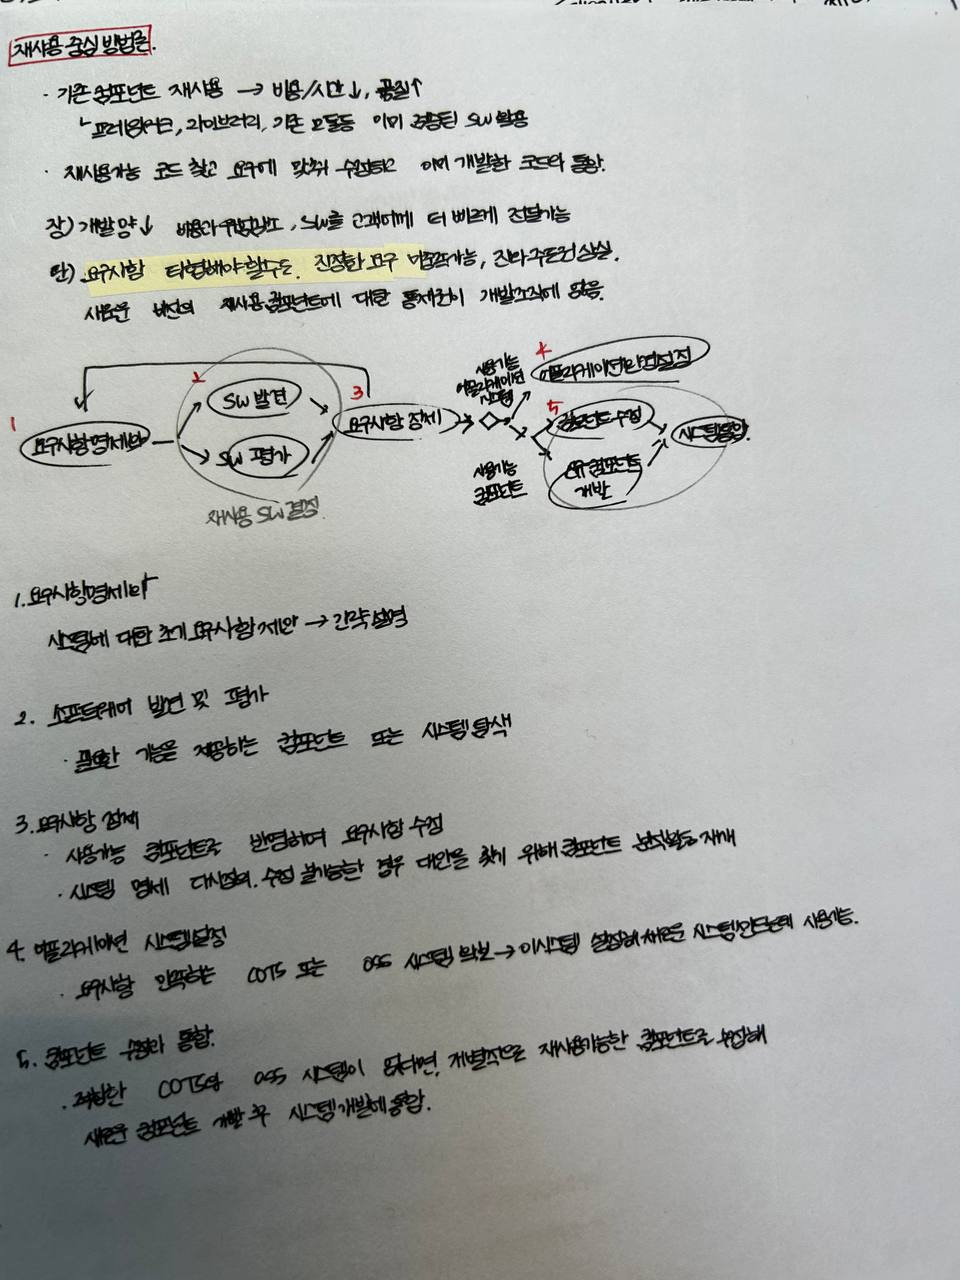 재사용 중심 방법론.
· 기존 컴포넌트 재사용 → 비용/시간↓, 품질↑
└ 프레임워크, 라이브러리, 기존 모듈등 이미 검증된 SW 활용
· 재사용가능 코드 찾고 요구에 맞춰 수정하고 이미 개발한 코드와 통합.
장) 개발양↓ 비용과 위험감소, SW를 고객에게 더 빠르게 전달가능
단) 요구사항 타협해야 할수도. 진정한 요구 미충족가능, 진화 주도권 상실.
새로운 버전의 재사용 컴포넌트에 대한 통제권이 개발조직에 없음.
1
요구사항명세화
2
SW 발견
SW 평가
재사용 SW 결정
3
요구사항 정제
사용가능
어플리케이션
시스템
4
어플리케이션 시스템설정
사용가능
컴포넌트
5
컴포넌트 수정
컴포넌트
개발
시스템통합
1. 요구사항명세화
시스템에 대한 초기 요구사항 제안 → 간략 설명
2. 소프트웨어 발견 및 평가
· 필요한 기능을 제공하는 컴포넌트 또는 시스템 탐색
3. 요구사항 정제
· 사용가능 컴포넌트로 반영하여 요구사항 수정
· 시스템 명세 다시정의. 수정 불가능한 경우 대안을 찾기 위해 컴포넌트 분석활동 재개
4. 어플리케이션 시스템설정
· 요구사항 만족하는 COTS 또는 OSS 시스템 확보 → 이시스템 설정해 새로운 시스템만드는데 사용가능.
5. 컴포넌트 수정과 통합.
· 적합한 COTS와 OSS 시스템이 없다면, 개별적으로 재사용가능한 컴포넌트로 수정해
새로운 컴포넌트 개발 후 시스템개발에 통합.